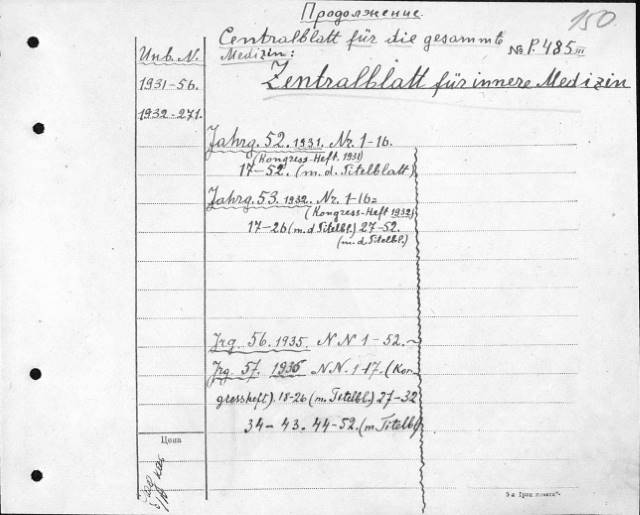 Продолжение.
150.
Centralblatt für die gesammte
Medizin:
№ P. 485 III
Zentralblatt für innere Medizin
Инв. N.
1931-56.
1932-271.
Jahrg. 52. 1931. Nr. 1-16.
(Kongress-Heft. 1931)
17-52. (m. d. Titelblatt)
Jahrg. 53. 1932. Nr. 1-16
(Kongress-Heft 1932)
17-26 (m. d Titelbl.) 27-52.
(m. d Titelbl.)
Jrg. 56. 1935. N N 1-52.
Jrg. 57. 1936 N N. 1-17. (Kon-
gressheft). 18-26 (m. Titelbl.) 27-32
34-43. 44-52. (m Titelbl)
Цена